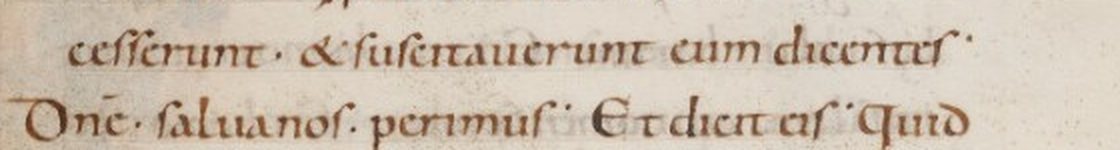 cesserunt · & suscitauerunt eum dicentes ·
Dne̅ · salua nos · perimus · Et dicit eis · Quid